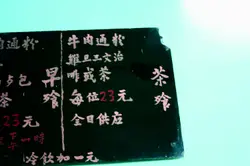 肉通粉
5包
茶
23元
早飱
牛肉通粉
雞旦王文治
啡或茶
每位23元
全日供应
茶飱
冷飲加一元